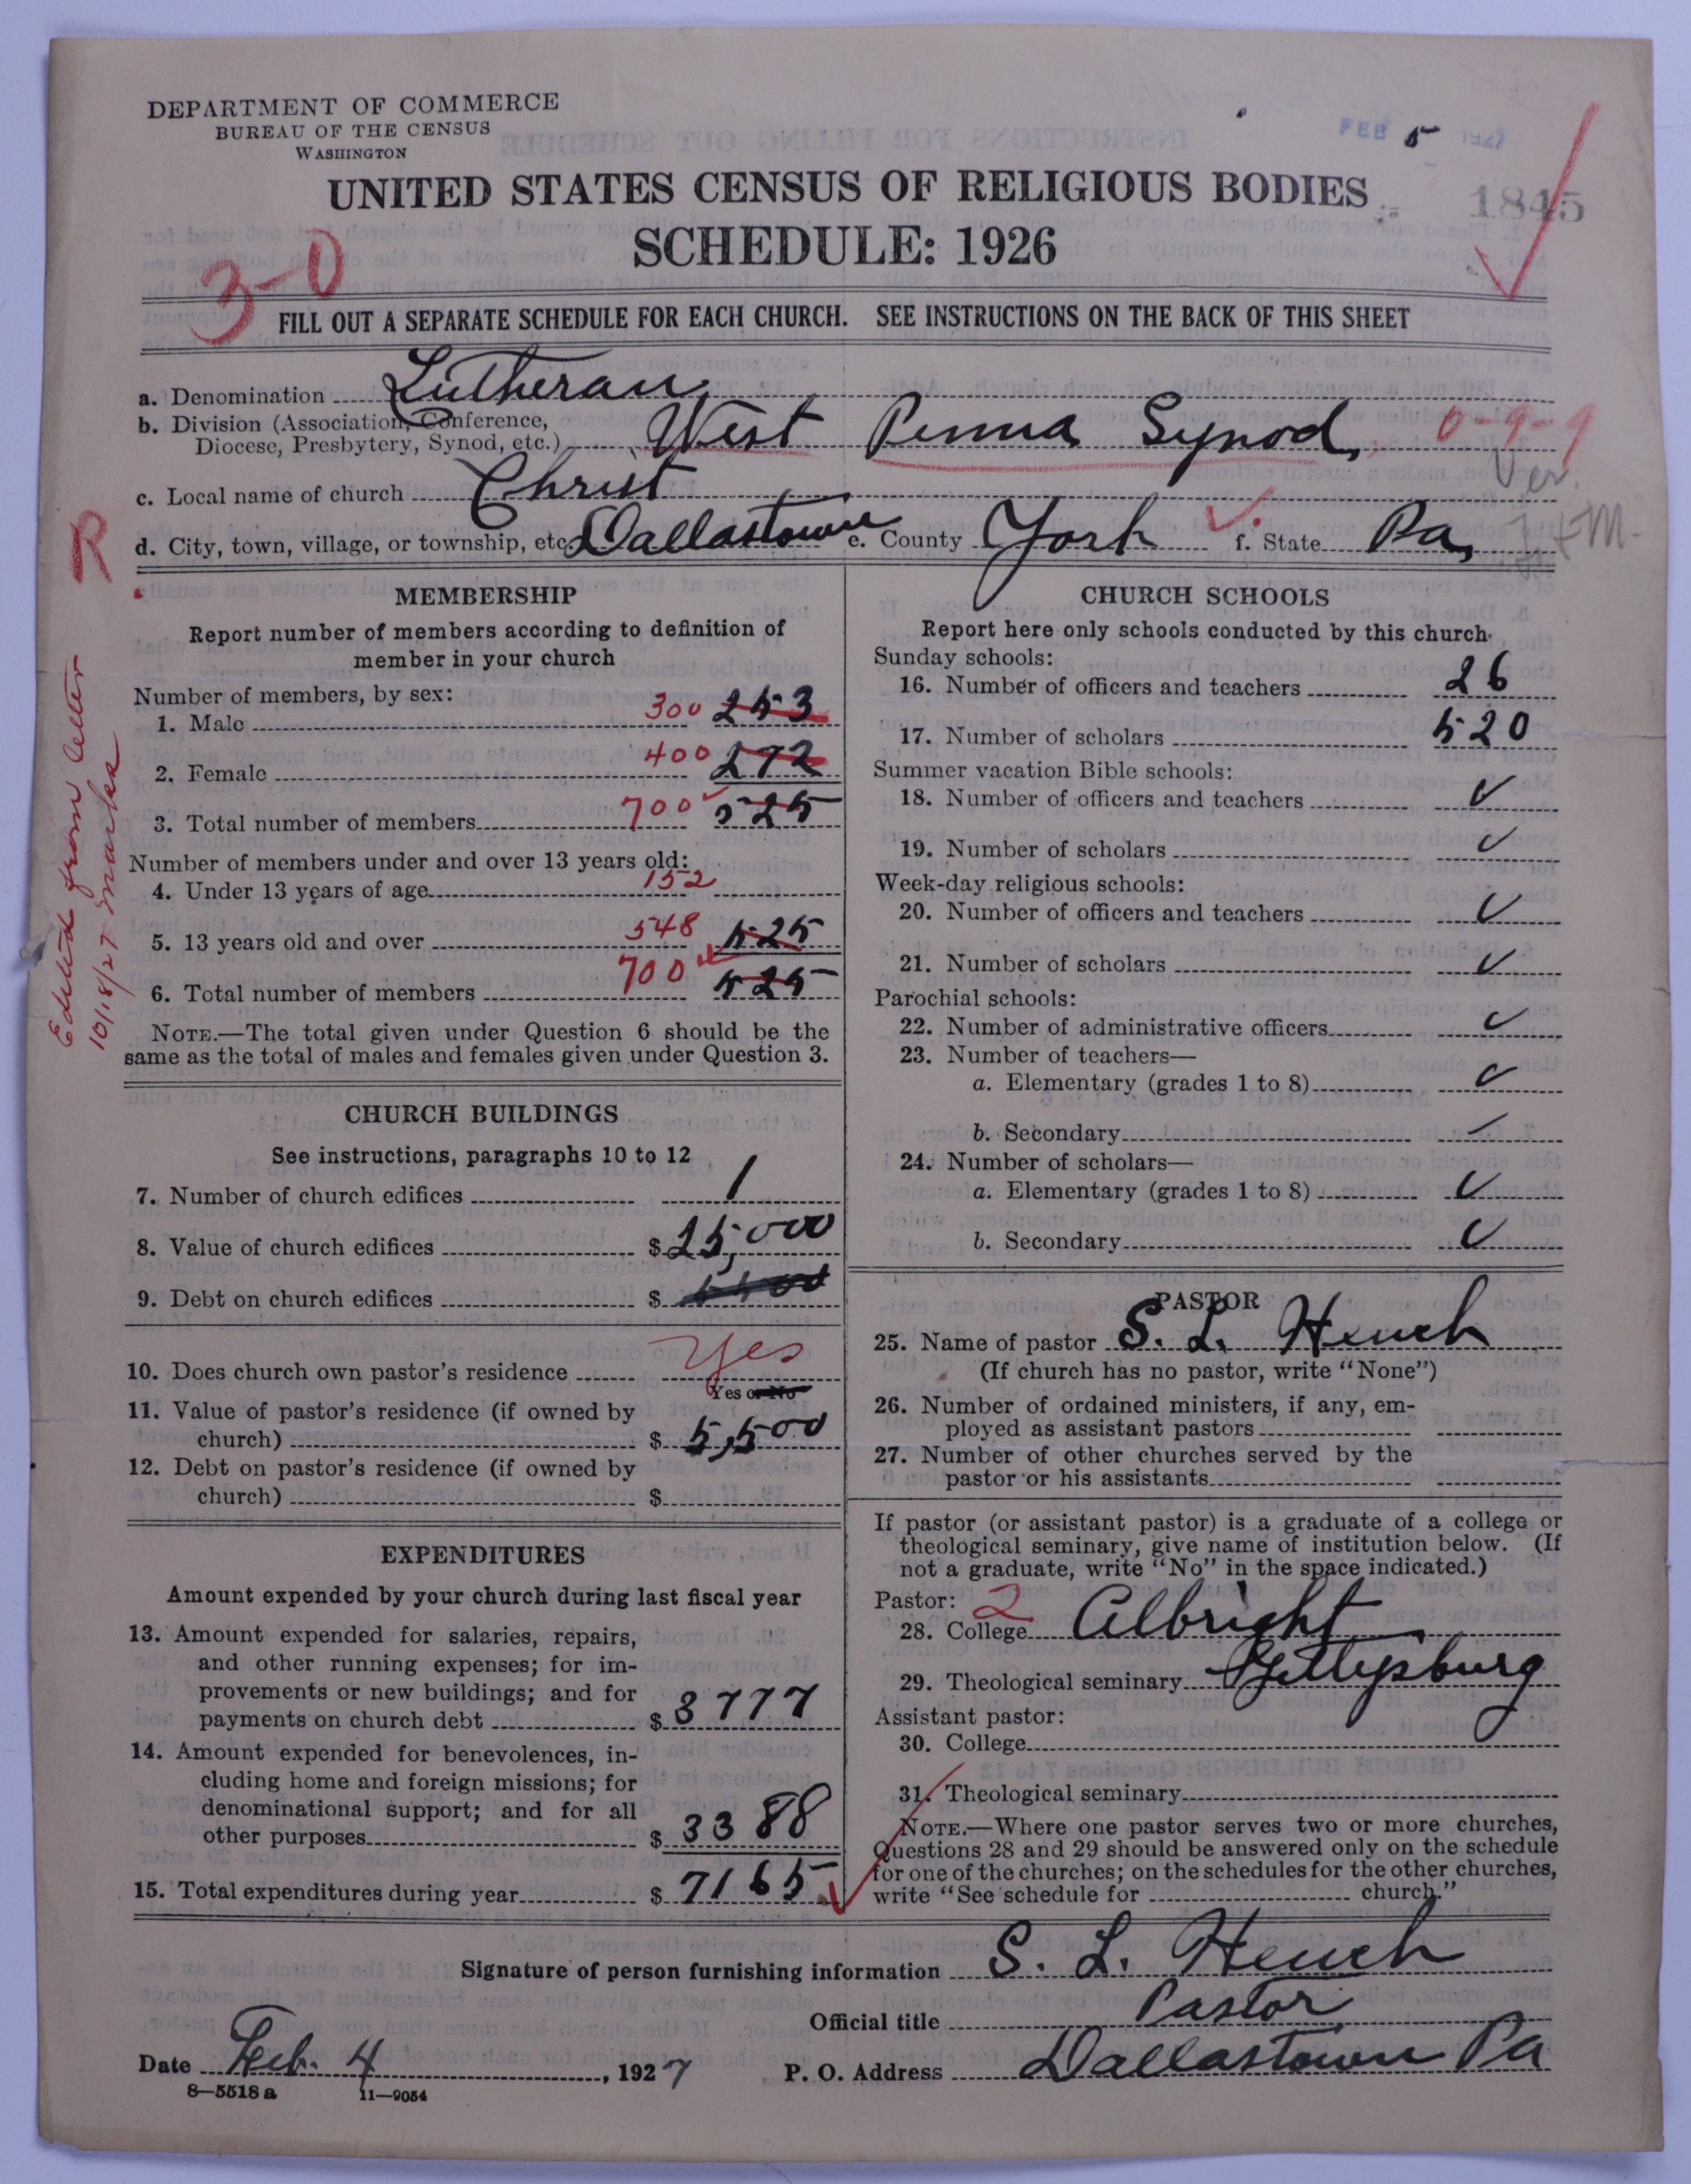 DEPARTMENT OF COMMERCE
BUREAU OF THE CENSUS
WASHINGTON
FEB 5 1927
UNITED STATES CENSUS OF RELIGIOUS BODIES
1845
SCHEDULE: 1926
3-0
FILL OUT A SEPARATE SCHEDULE FOR EACH CHURCH. SEE INSTRUCTIONS ON THE BACK OF THIS SHEET
a. Denomination Lutheran
b. Division (Association, Conference,
Diocese, Presbytery, Synod, etc.) West Penna Synod, 0-9-9
Ver.
c. Local name of church Christ
d. City, town, village, or township, etc. Dallastown e. County York f. State Pa,
Edited from letter
10/18/27 Marks
MEMBERSHIP
Report number of members according to definition of
member in your church
Number of members, by sex:
1. Male 300 253
2. Female 400 272
3. Total number of members 700 525
Number of members under and over 13 years old:
4. Under 13 years of age 152
5. 13 years old and over 548 525
6. Total number of members 700 525
NOTE.—The total given under Question 6 should be the
same as the total of males and females given under Question 3.
CHURCH BUILDINGS
See instructions, paragraphs 10 to 12
7. Number of church edifices 1
8. Value of church edifices $25,000
9. Debt on church edifices $
10. Does church own pastor's residence Yes
Yes or No
11. Value of pastor's residence (if owned by
church) $ 5,500
12. Debt on pastor's residence (if owned by
church) $
EXPENDITURES
Amount expended by your church during last fiscal year
13. Amount expended for salaries, repairs,
and other running expenses; for im-
provements or new buildings; and for
payments on church debt $ 3777
14. Amount expended for benevolences, in-
cluding home and foreign missions; for
denominational support; and for all
other purposes $ 3388
15. Total expenditures during year $ 7165
CHURCH SCHOOLS
Report here only schools conducted by this church.
Sunday schools:
16. Number of officers and teachers 26
17. Number of scholars 520
Summer vacation Bible schools:
18. Number of officers and teachers
19. Number of scholars
Week-day religious schools:
20. Number of officers and teachers
21. Number of scholars
Parochial schools:
22. Number of administrative officers
23. Number of teachers—
a. Elementary (grades 1 to 8)
b. Secondary
24. Number of scholars—
a. Elementary (grades 1 to 8)
b. Secondary
PASTOR
25. Name of pastor S. L. Hench
(If church has no pastor, write "None")
26. Number of ordained ministers, if any, em-
ployed as assistant pastors
27. Number of other churches served by the
pastor or his assistants
If pastor (or assistant pastor) is a graduate of a college or
theological seminary, give name of institution below. (If
not a graduate, write "No" in the space indicated.)
Pastor: 2
28. College Albright
29. Theological seminary Gettysburg
Assistant pastor:
30. College
31. Theological seminary
NOTE.—Where one pastor serves two or more churches,
Questions 28 and 29 should be answered only on the schedule
for one of the churches; on the schedules for the other churches,
write "See schedule for church."
Signature of person furnishing information S. L. Hench
Official title Pastor
Date Feb. 4, 1927 P. O. Address Dallastown Pa
8—5518 a 11—9054